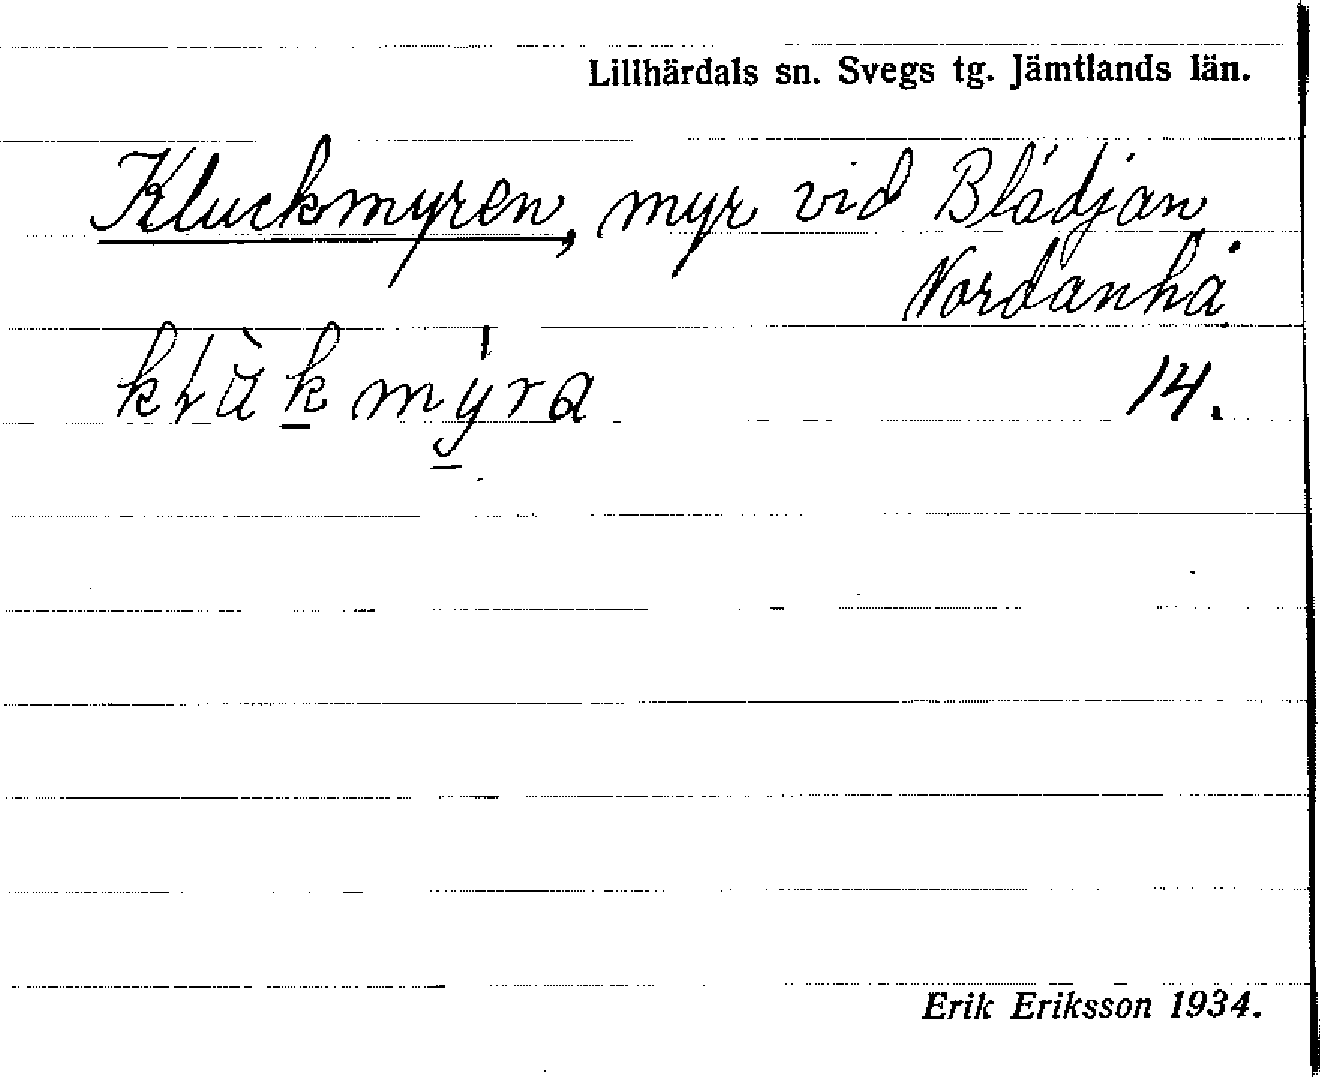 Lillhärdals sn. Svegs tg. Jämtlands län.
Kluckmyren, myr vid Blädjan
Nordanhå
14.
Erik Eriksson 1934.